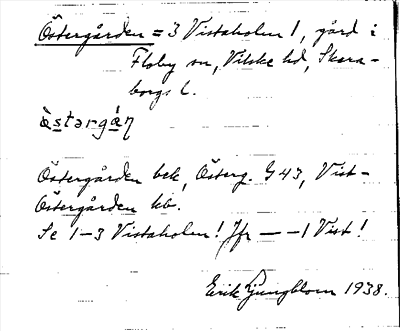 Östergården = 3 Vistaholm 1, gård i
Floby sn, Vilske hd, Skara-
borgs l.
Östergården bek, Österg. G 43, Vist-
Östergården kb.
Se 1-3 Vistaholm! Jfr — -1 Vist!
Erik Ljungblom 1938.